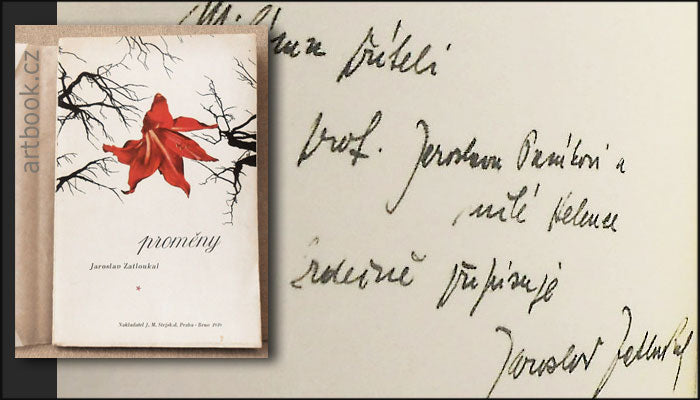 artbook.cz
proměny
Jaroslav Zatloukal
Nakladatel J. M. Stejskal, Praha - Brno
Milému příteli
prof. Jaroslavu
a
milé Helence
srdečně připisuje
Jaroslav Zatloukal